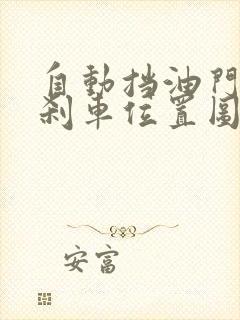 自動挡油門
刹車位置圖
安富